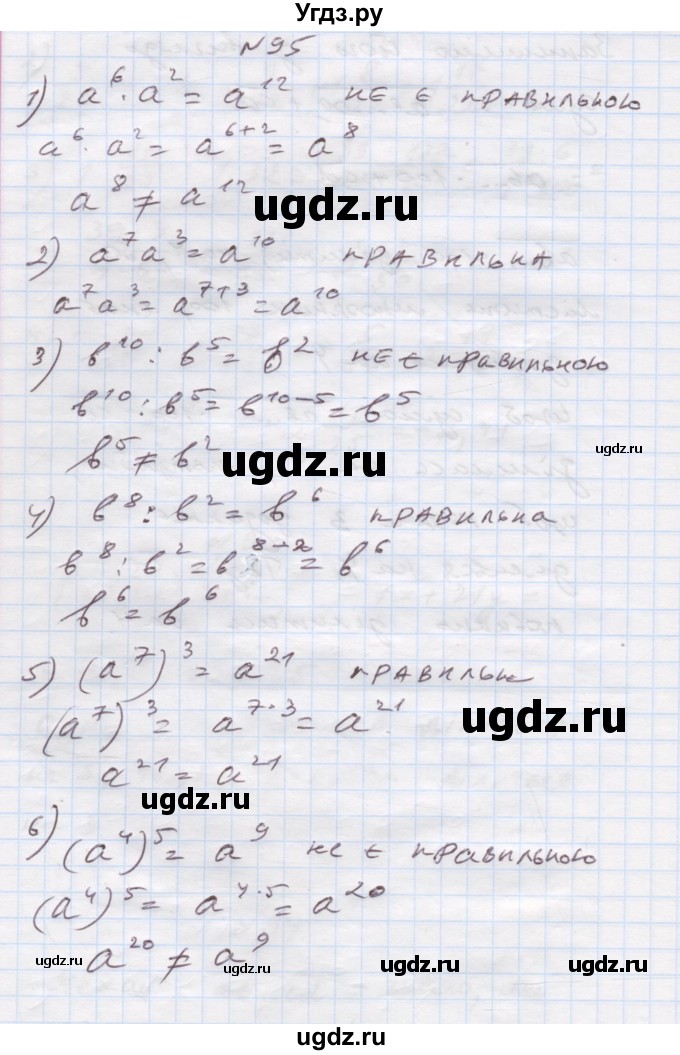 Угдз.ру
№95
1) a⁶·a² = a¹² не є правильною
a⁶·a² = a⁶⁺² = a⁸
a⁸ ≠ a¹²
ugdz.ru
2) a⁷a³ = a¹⁰ правильна
a⁷a³ = a⁷⁺³ = a¹⁰
3) b¹⁰ : b⁵ = b² не є правильною
b¹⁰ : b⁵ = b¹⁰⁻⁵ = b⁵
ugdz.ru
b⁵ ≠ b²
ugdz.ru
4) b⁸ : b² = b⁶ правильна
b⁸ : b² = b⁸⁻² = b⁶
ugdz.ru
b⁶ = b⁶
5) (a⁷)³ = a²¹ правильн
(a⁷)³ = a⁷·³ = a²¹
ugdz.ru
a²¹ = a²¹
ugdz.ru
6) (a⁴)⁵ = a⁹ не є правильною
(a⁴)⁵ = a⁴·⁵ = a²⁰
a²⁰ ≠ a⁹
ugdz.ru
ugdz.ru
ugdz.ru
ugdz.ru
ugdz.ru